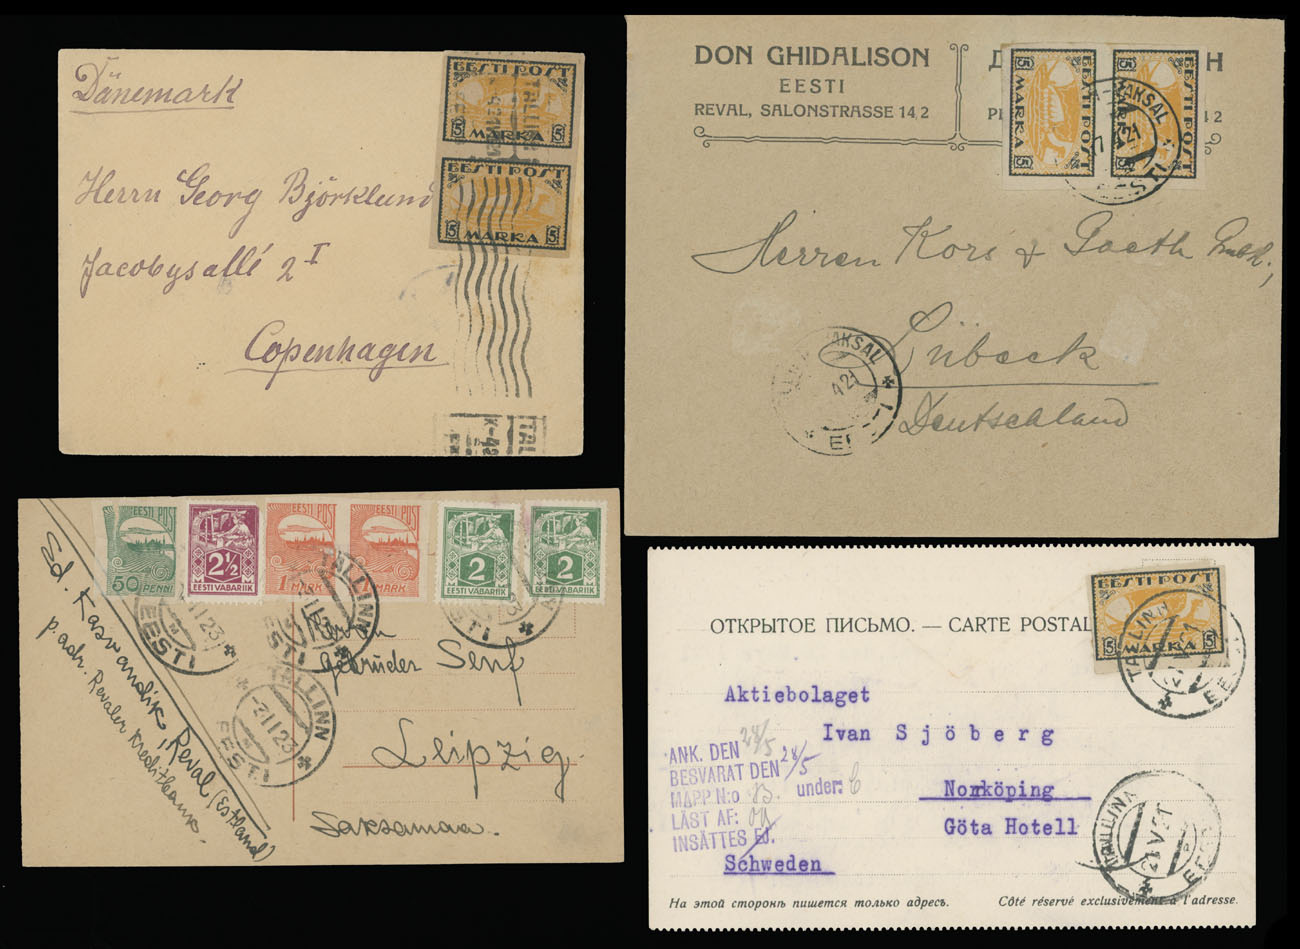 Dänemark
Herrn Georg Björklund
Jacobysallé 2 I
Copenhagen
EESTI POST
5 MARKA 5
EESTI POST
5 MARKA 5
TAL
DON GHIDALISON
EESTI
REVAL, SALONSTRASSE 14,2
EESTI POST
5 MARKA 5
EESTI POST
5 MARKA 5
AKSAL
4 21
EESTI
Herren Kori & Gaeth Gmbh.,
Lübeck
Deutschland
AKSAL
4 21
EESTI POST
50 PENNI
2½
EESTI VABARIIK
EESTI POST
1 MARK
EESTI POST
1 MARK
2
EESTI VABARIIK
2
EESTI VABARIIK
TALLINN
EESTI
TALLINN
-2 II 23
EESTI
Gebrüder Senf
Leipzig
Saksamaa.
Ed. Kasvandik, Reval (Estland)
p. adr. Revaler Kreditbank.
EESTI POST
5 MARKA 5
TALLINN
EESTI
ОТКРЫТОЕ ПИСЬМО. — CARTE POSTAL
Aktiebolaget
Ivan Sjöberg
Norrköping
Göta Hotell
Schweden
ANK. DEN 24/5
BESVARAT DEN 28/5
MAPP N:o B. under: C
LÄST AF:
INSÄTTES EJ.
TALLINN
21 V 21
EESTI
На этой сторонѣ пишется только адресъ.
Côté réservé exclusivement à l'adresse.